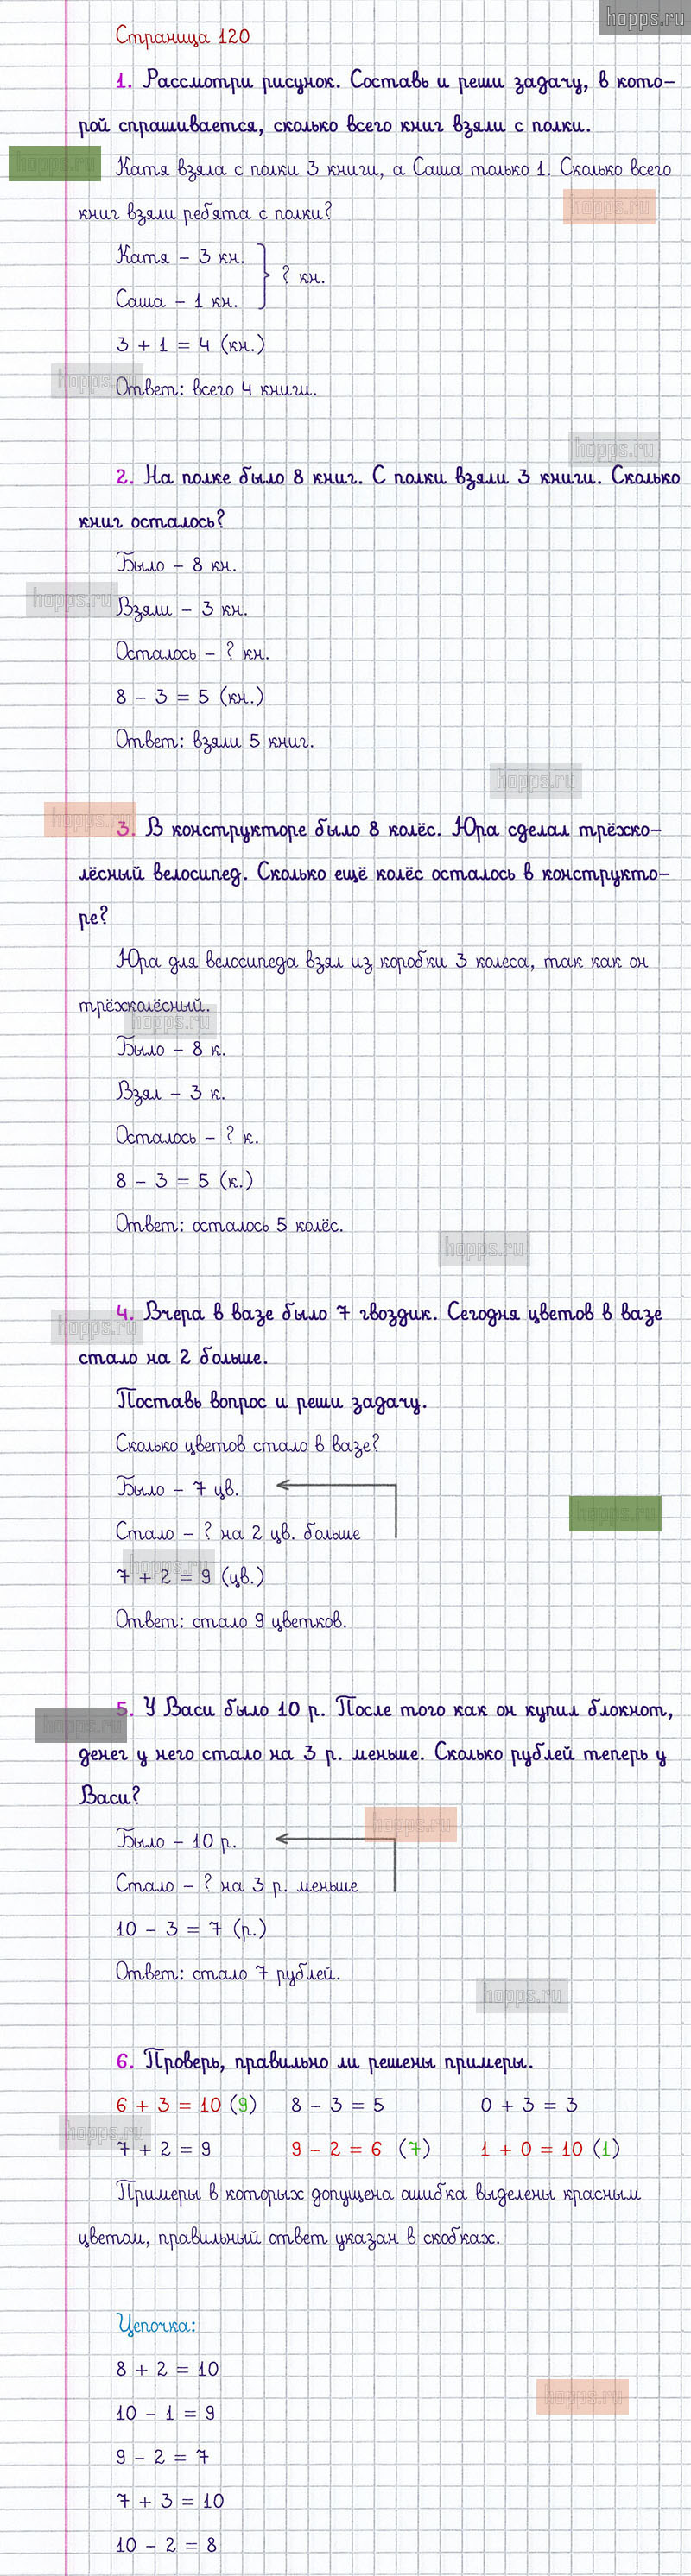 hopps.ru
Страница 120
1. Рассмотри рисунок. Составь и реши задачу, в кото-
рой спрашивается, сколько всего книг взяли с полки.
hopps.ru
Катя взяла с полки 3 книги, а Саша только 1. Сколько всего
hopps.ru
книг взяли ребята с полки?
Катя – 3 кн.
? кн.
Саша – 1 кн.
3 + 1 = 4 (кн.)
hopps.ru
Ответ: всего 4 книги.
hopps.ru
2. На полке было 8 книг. С полки взяли 3 книги. Сколько
книг осталось?
Было – 8 кн.
hopps.ru
Взяли – 3 кн.
Осталось – ? кн.
8 – 3 = 5 (кн.)
Ответ: взяли 5 книг.
hopps.ru
hopps.ru
3. В конструкторе было 8 колёс. Юра сделал трёхко-
лёсный велосипед. Сколько ещё колёс осталось в конструкто-
ре?
Юра для велосипеда взял из коробки 3 колеса, так как он
трёхколёсный.
hopps.ru
Было – 8 к.
Взял – 3 к.
Осталось – ? к.
8 – 3 = 5 (к.)
Ответ: осталось 5 колёс.
hopps.ru
hopps.ru
4. Вчера в вазе было 7 гвоздик. Сегодня цветов в вазе
стало на 2 больше.
Поставь вопрос и реши задачу.
Сколько цветов стало в вазе?
Было – 7 цв.
hopps.ru
Стало – ? на 2 цв. больше
hopps.ru
7 + 2 = 9 (цв.)
Ответ: стало 9 цветков.
hopps.ru
5. У Васи было 10 р. После того как он купил блокнот,
денег у него стало на 3 р. меньше. Сколько рублей теперь у
Васи?
hopps.ru
Было – 10 р.
Стало – ? на 3 р. меньше
10 – 3 = 7 (р.)
Ответ: стало 7 рублей.
hopps.ru
6. Проверь, правильно ли решены примеры.
6 + 3 = 10 (9) 8 – 3 = 5 0 + 3 = 3
hopps.ru
7 + 2 = 9 9 – 2 = 6 (7) 1 + 0 = 10 (1)
Примеры в которых допущена ошибка выделены красным
цветом, правильный ответ указан в скобках.
Цепочка:
8 + 2 = 10
hopps.ru
10 – 1 = 9
9 – 2 = 7
7 + 3 = 10
10 – 2 = 8